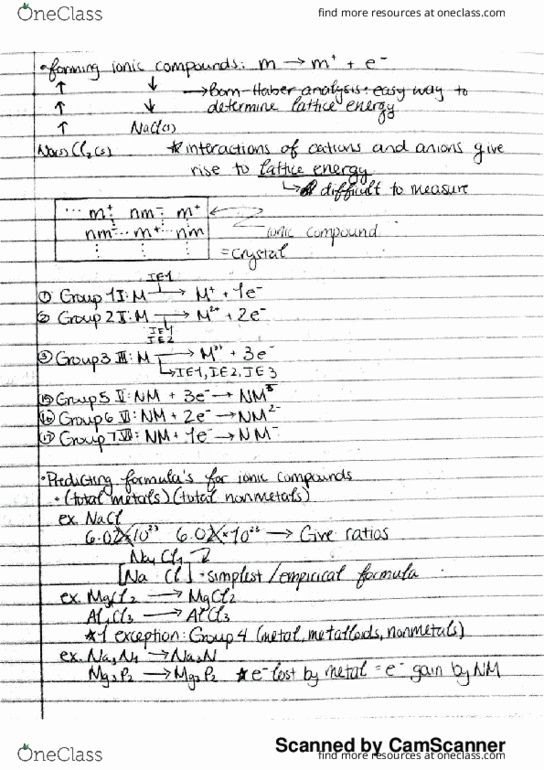 OneClass
find more resources at oneclass.com
• forming ionic compounds: m → m⁺ + e⁻
↑ ↓ → Born-Haber analysis: easy way to
↑ ↓ determine lattice energy
↑ NaCl(s)
Na(s) Cl₂(g) * interactions of cations and anions give
rise to lattice energy
↳ difficult to measure
... m⁺ nm⁻ m⁺
nm⁻ ... m⁺ ... nm ionic compound
⋮ ⋮ ⋮ = crystal
IE1
① Group 1 I: M → M⁺ + 1e⁻
② Group 2 II: M → M²⁺ + 2e⁻
IE1
IE2
③ Group 3 III: M → M³⁺ + 3e⁻
↳ IE1, IE2, IE3
⑮ Group 5 V: NM + 3e⁻ → NM³⁻
⑯ Group 6 VI: NM + 2e⁻ → NM²⁻
⑰ Group 7 VII: NM + 1e⁻ → NM⁻
• Predicting formula's for ionic compounds
• (total metals)(total nonmetals)
ex. NaCl
6.02×10²³ 6.02×10²³ → Give ratios
Na₁ Cl₁
[Na Cl] - simplest/empirical formula
ex. MgCl₂ → MgCl2
Al₁Cl₃ → AlCl₃
*1 exception: Group 4 (metal, metalloids, nonmetals)
ex. Na₃N₁ → Na₃N
Mg₃P₂ → Mg₃P₂ * e⁻ lost by metal = e⁻ gain by NM
Scanned by CamScanner
OneClass
find more resources at oneclass.com